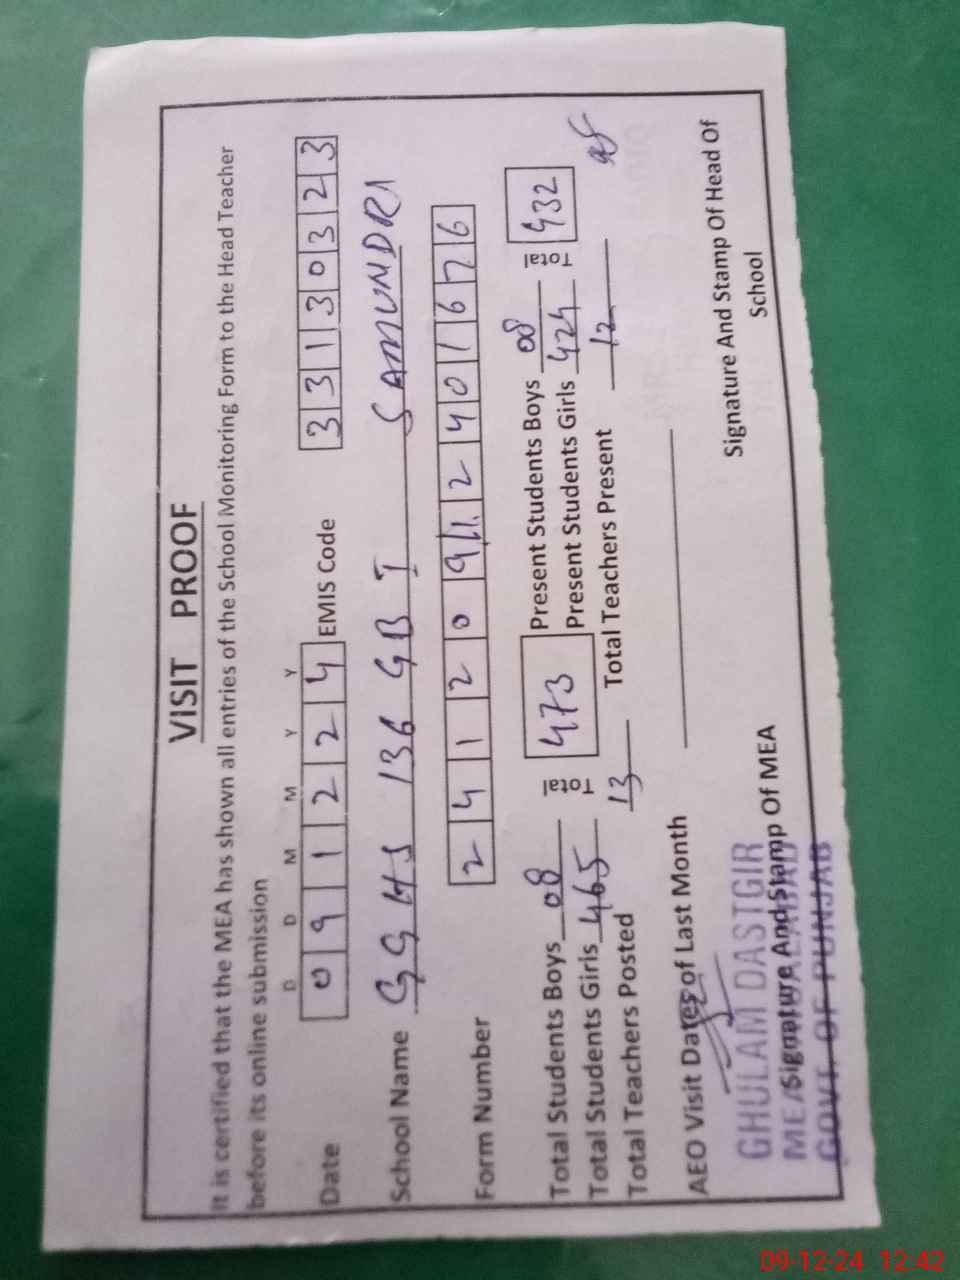 VISIT PROOF
It is certified that the MEA has shown all entries of the School Monitoring Form to the Head Teacher
before its online submission
D D M M Y Y
Date 0 9 1 2 2 4 EMIS Code 3 3 1 3 0 3 2 3
School Name GGHS 136 GB I SAMUNDRI
Form Number 2 4 1 2 0 9 1 2 4 0 1 6 7 6
Total Students Boys 08 Total 473 Present Students Boys 08 Total 432
Total Students Girls 465 Present Students Girls 424
Total Teachers Posted 13 Total Teachers Present 12
AEO Visit Dates of Last Month
GHULAM DASTGIR
Signature And Stamp Of MEA
MEA
GOVT. OF PUNJAB
Signature And Stamp Of Head Of
School
09-12-24 12:42